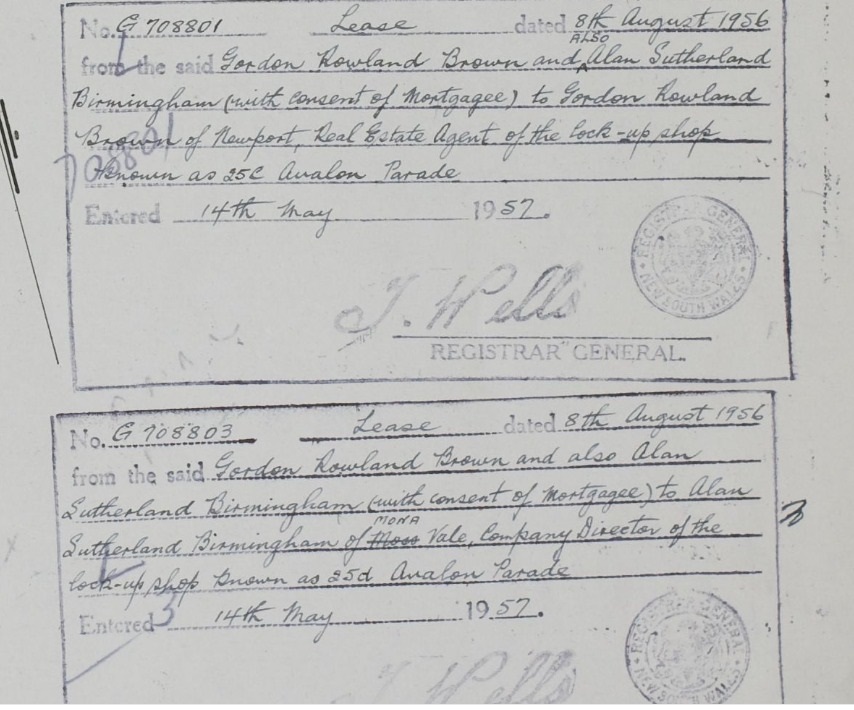 No. G 708801 Lease dated 8th August 1956
from the said Gordon Rowland Brown and ALSO Alan Sutherland
Birmingham (with consent of Mortgagee) to Gordon Rowland
Brown of Newport, Real Estate Agent of the lock-up shop
known as 25C Avalon Parade
708801
Entered 14th May 1957.
REGISTRAR GENERAL
NEW SOUTH WALES
J. Wells
REGISTRAR GENERAL.
No. G 708803 Lease dated 8th August 1956
from the said Gordon Rowland Brown and also Alan
Sutherland Birmingham (with consent of Mortgagee) to Alan
MONA
Sutherland Birmingham of Moss Vale, Company Director of the
lock-up shop known as 25d Avalon Parade
Entered 14th May 1957.
REGISTRAR GENERAL
NEW SOUTH WALES
J. Wells